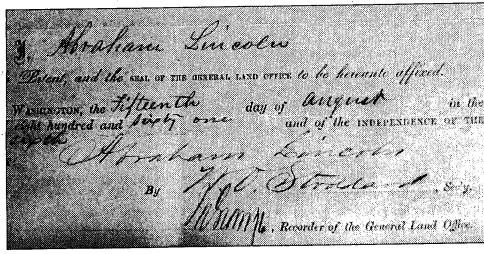 I, Abraham Lincoln
Patent, and the SEAL OF THE GENERAL LAND OFFICE to be hereunto affixed.
WASHINGTON, the fifteenth day of august in the
eight hundred and sixty one and of the INDEPENDENCE OF THE
Abraham Lincoln
By W. O. Stoddard, Sec'y,
, Recorder of the General Land Office.